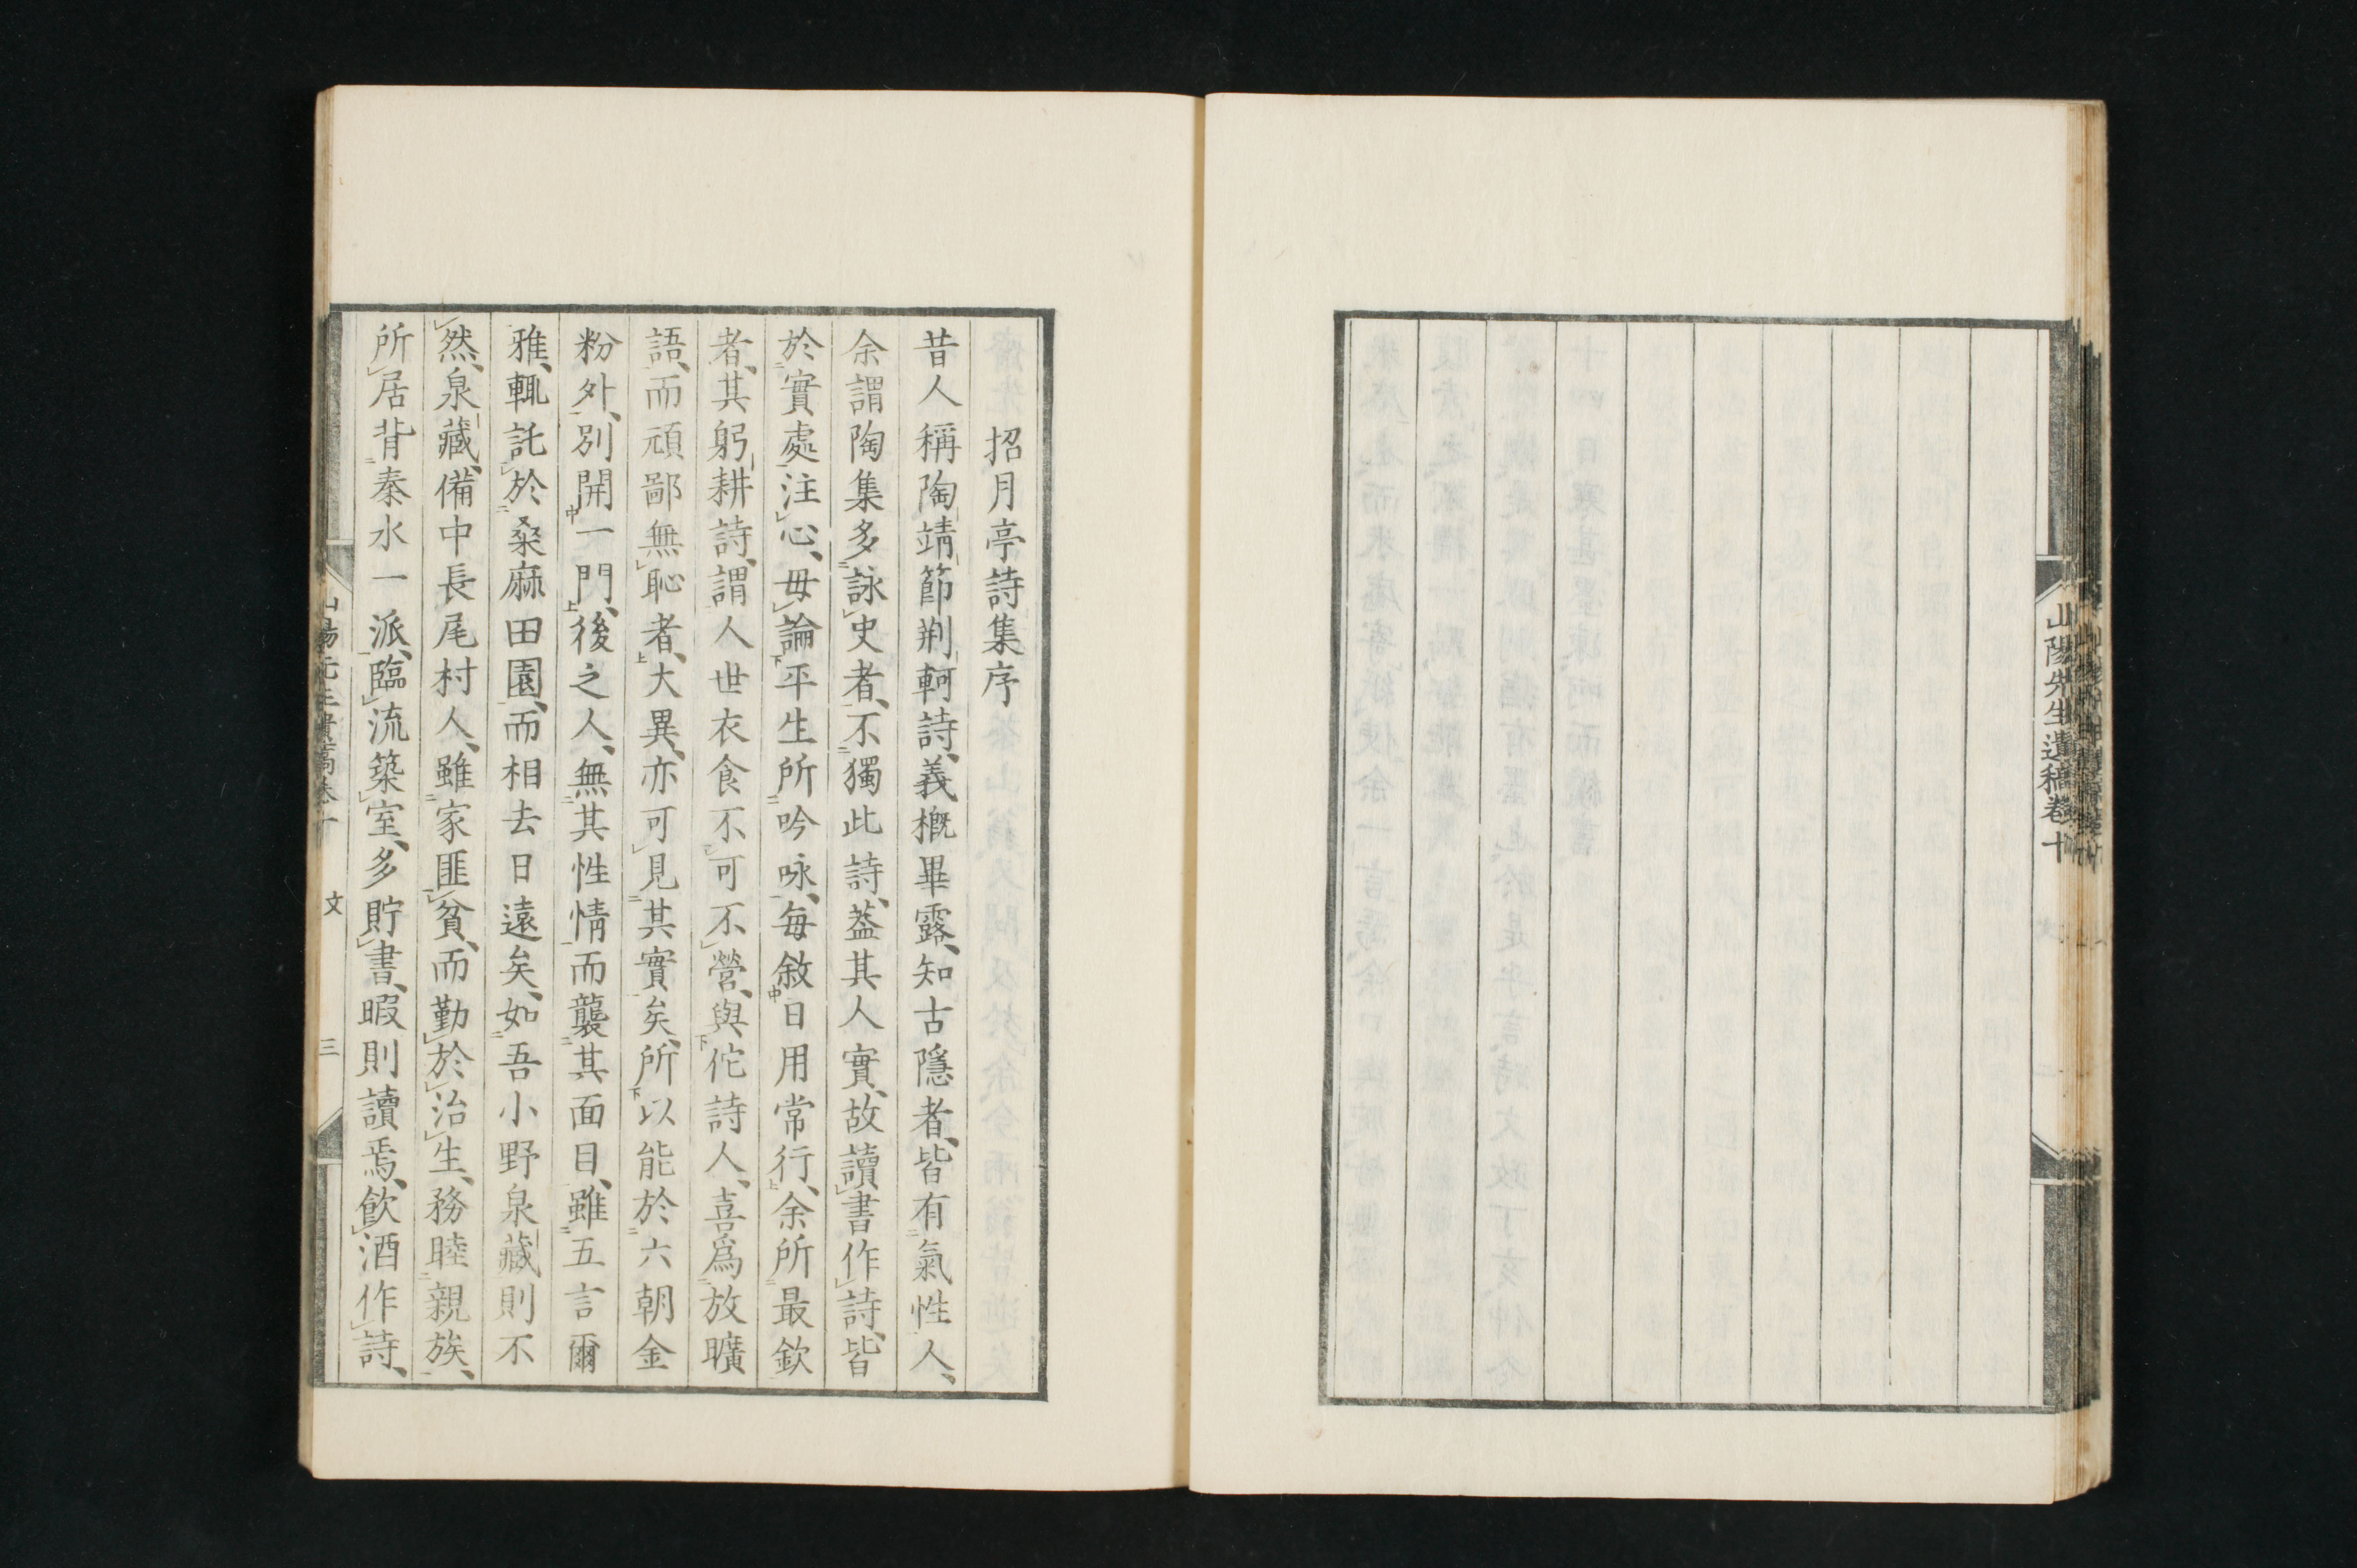 山陽先生遺稿卷十
招月亭詩集序
昔人稱陶靖節荊軻詩、義概畢露、知古隱者、皆有氣性人、
余謂陶集多詠史者、不獨此詩、蓋其人實、故讀書作詩、皆
於實處注心、毋論平生所吟咏、每敘日用常行、余所最欽
者、其躬耕詩、謂人世衣食不可不營、與佗詩人、喜爲放曠
語、而頑鄙無恥者、大異、亦可見其實矣、所以能於六朝金
粉外、別開一門、後之人、無其性情而襲其面目、雖五言爾
雅、輒託於桑麻田園、而相去日遠矣、如吾小野泉藏則不
然、泉藏、備中長尾村人、雖家匪貧、而勤於治生、務睦親族、
所居背秦水一派、臨流築室、多貯書、暇則讀焉、飮酒作詩、
文 三